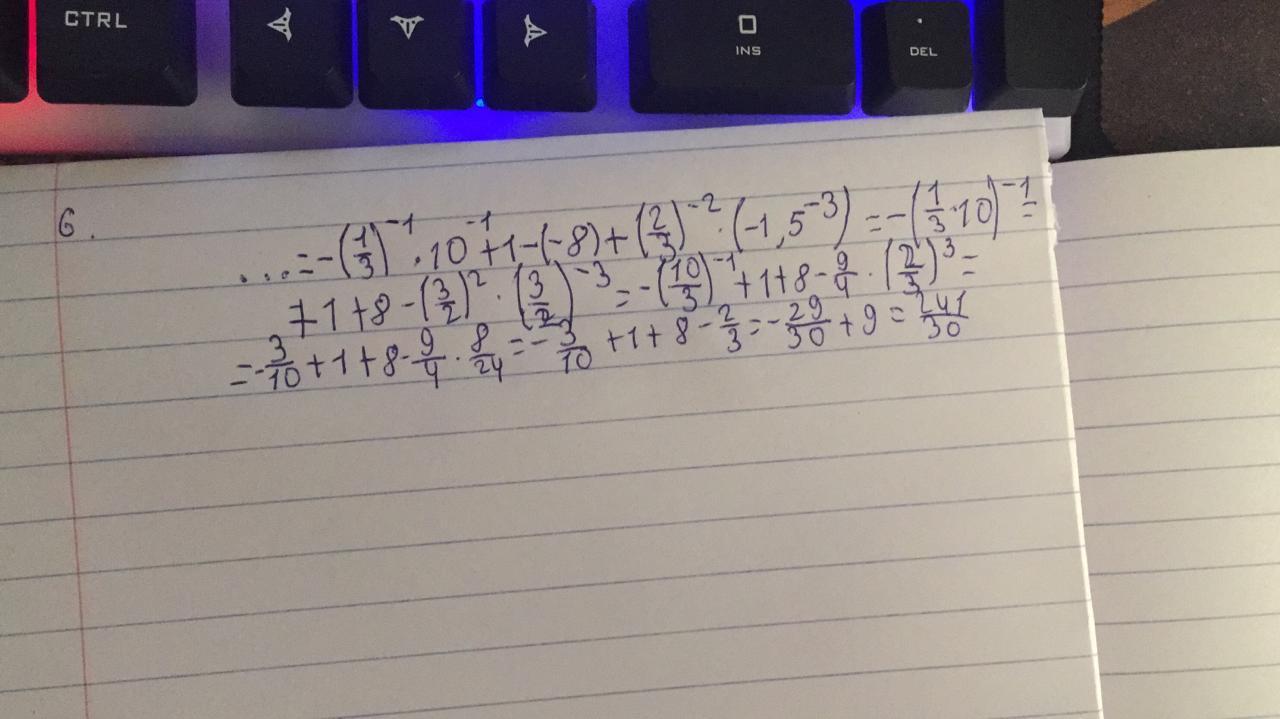 CTRL
INS
DEL
6.
...=-(1/3)^-1 · 10^-1 + 1 - (-8) + (2/3)^-2 · (-1,5^-3) = -(1/3 · 10)^-1 =
+ 1 + 8 - (3/2)^2 · (3/2)^-3 = -(10/3)^-1 + 1 + 8 - 9/4 · (2/3)^3 =
= -3/10 + 1 + 8 - 9/4 · 8/24 = -3/10 + 1 + 8 - 2/3 = -29/30 + 9 = 241/30